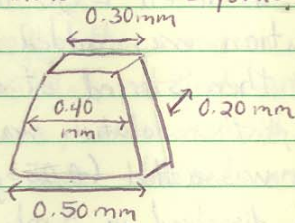 0.30mm
0.40
mm
0.20 mm
0.50mm